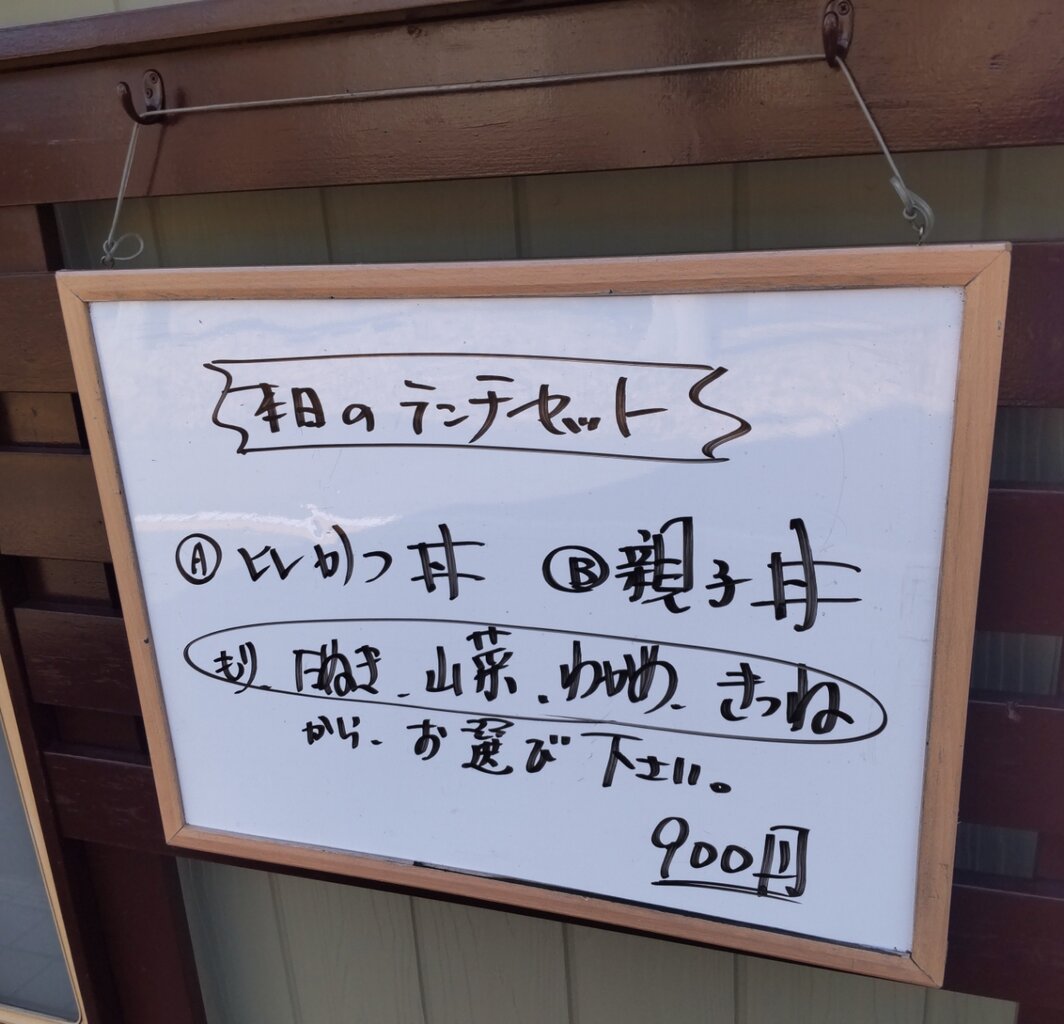 本日のランチセット
Ⓐ ヒレかつ丼 Ⓑ 親子丼
もり、たぬき、山菜、わかめ、きつね
から、お選び下さい。
900円